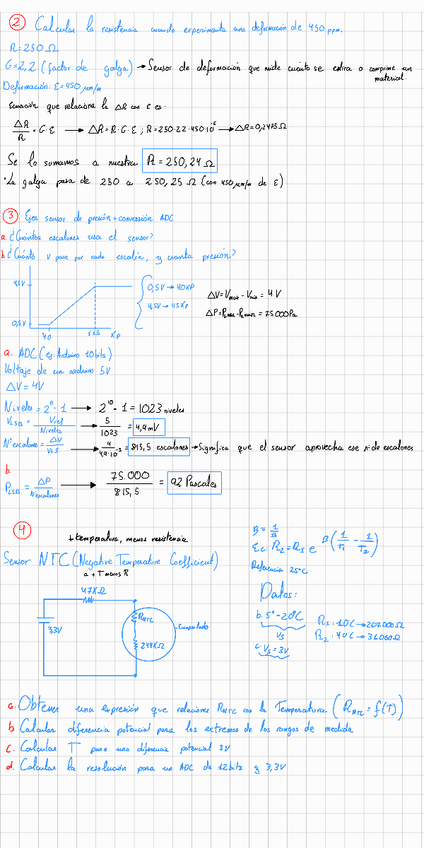 ② Calcular la resistencia cuando experimenta una deformación de 450 ppm.
R=250Ω
G=2,2 (factor de galga) → Sensor de deformación que mide cuánto se estira o comprime un material.
Deformación: ε=450 μm/m
Ecuación que relaciona la ΔR con ε es:
ΔR/R = G·ε → ΔR=R·G·ε ; R=250·2,2·450·10⁻⁶ → ΔR=0,2475Ω
Se lo sumamos a nuestra R=250,24Ω
·La galga pasa de 250 a 250,25Ω (con 450 μm/m de ε)
③ sensor de presión + conversión ADC
a. ¿Cuántos escalones usa el sensor?
b. ¿Cuánto V pasa por cada escalón, y cuanta presión?
4,5V
0,5V
40
115
KP
0,5V → 40KP
4,5V → 115KP
ΔV=Vmax - Vmin = 4V
ΔP=Pmax - Pmin = 75.000Pa
a. ADC (ej: Arduino 10bits)
Voltaje de un arduino 5V
ΔV=4V
Niveles=2ⁿ-1 → 2¹⁰-1=1023 niveles
VLSB = Vref/Niveles → 5/1023 = 4,9mV
NºEscalones = ΔV/VLSB → 4/4,9·10⁻³ = 815,5 escalones → Significa que el sensor aprovecha ese nº de escalones
b
PLSB = ΔP/Nºescalones → 75.000/815,5 = 92 Pascales
④
+temperatura, menos resistencia
Sensor NTC (Negative Temperature Coefficient)
a + T menos R
47KΩ
3,3V
RNTC
Ec: R2=R1 e^B(1/T1 - 1/T2)
Referencia 25ºC
Datos:
VS
c. VS=3V
a. Obtener una expresión que relacione RNTC con la Temperatura (RNTC=f(T))
b Calcular diferencia potencial para los extremos de los rangos de medida
c. Calcular T para una diferencia potencial 3V
d. Calcular la resolución para un ADC de 12bits y 3,3V